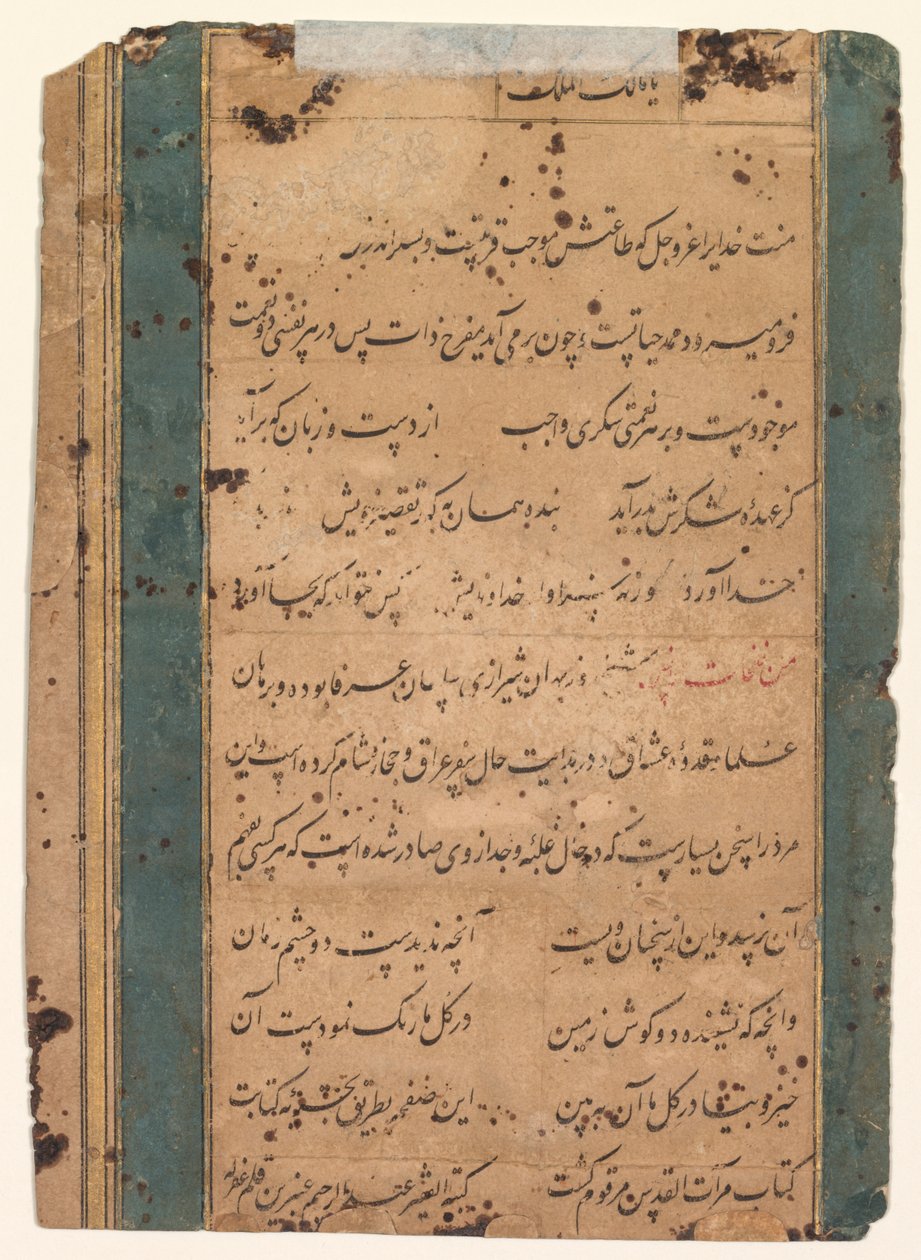 یا مالک الملک
منت خدایرا عز و جل که طاعتش موجب قربتست و بسکر اندرز
فرو میرود ممد حیاتست و چون بر می آید مفرح ذات پس در هر نفسی دو نعمت
موجودست و بر هر نعمتی شکری واجب از دست و زبان که برآید
کز عهدهٔ شکرش بدر آید بنده همان به که ز تقصیر خویش
خدا آورد ورنه سزاوار خداوندیش کس نتواند که بجا آورد
من نفحات شیخ روزبهان شیرازی سلطان عرفا بوده و برهان
علما و قدوهٔ عشاق در بدایت حال سفر عراق و حجاز و شام کرده است و این
مرد را سخن بسیارست که در حال غلبهٔ وجد از وی صادر شده است که هر کسی بفهم
آن نرسد و این از سخنان ویست آنچه ندیدست دو چشم زمان
وانچه که نشنیده دو گوش زمین در گل ما رنگ نمودست آن
خیز و بیا در گل ما آن ببین این صفحه بطریق کتابت
کتاب مرآت القدس مرقوم گشت کتبه الفقیر عبد الرحیم عنبرین قلم غفرله